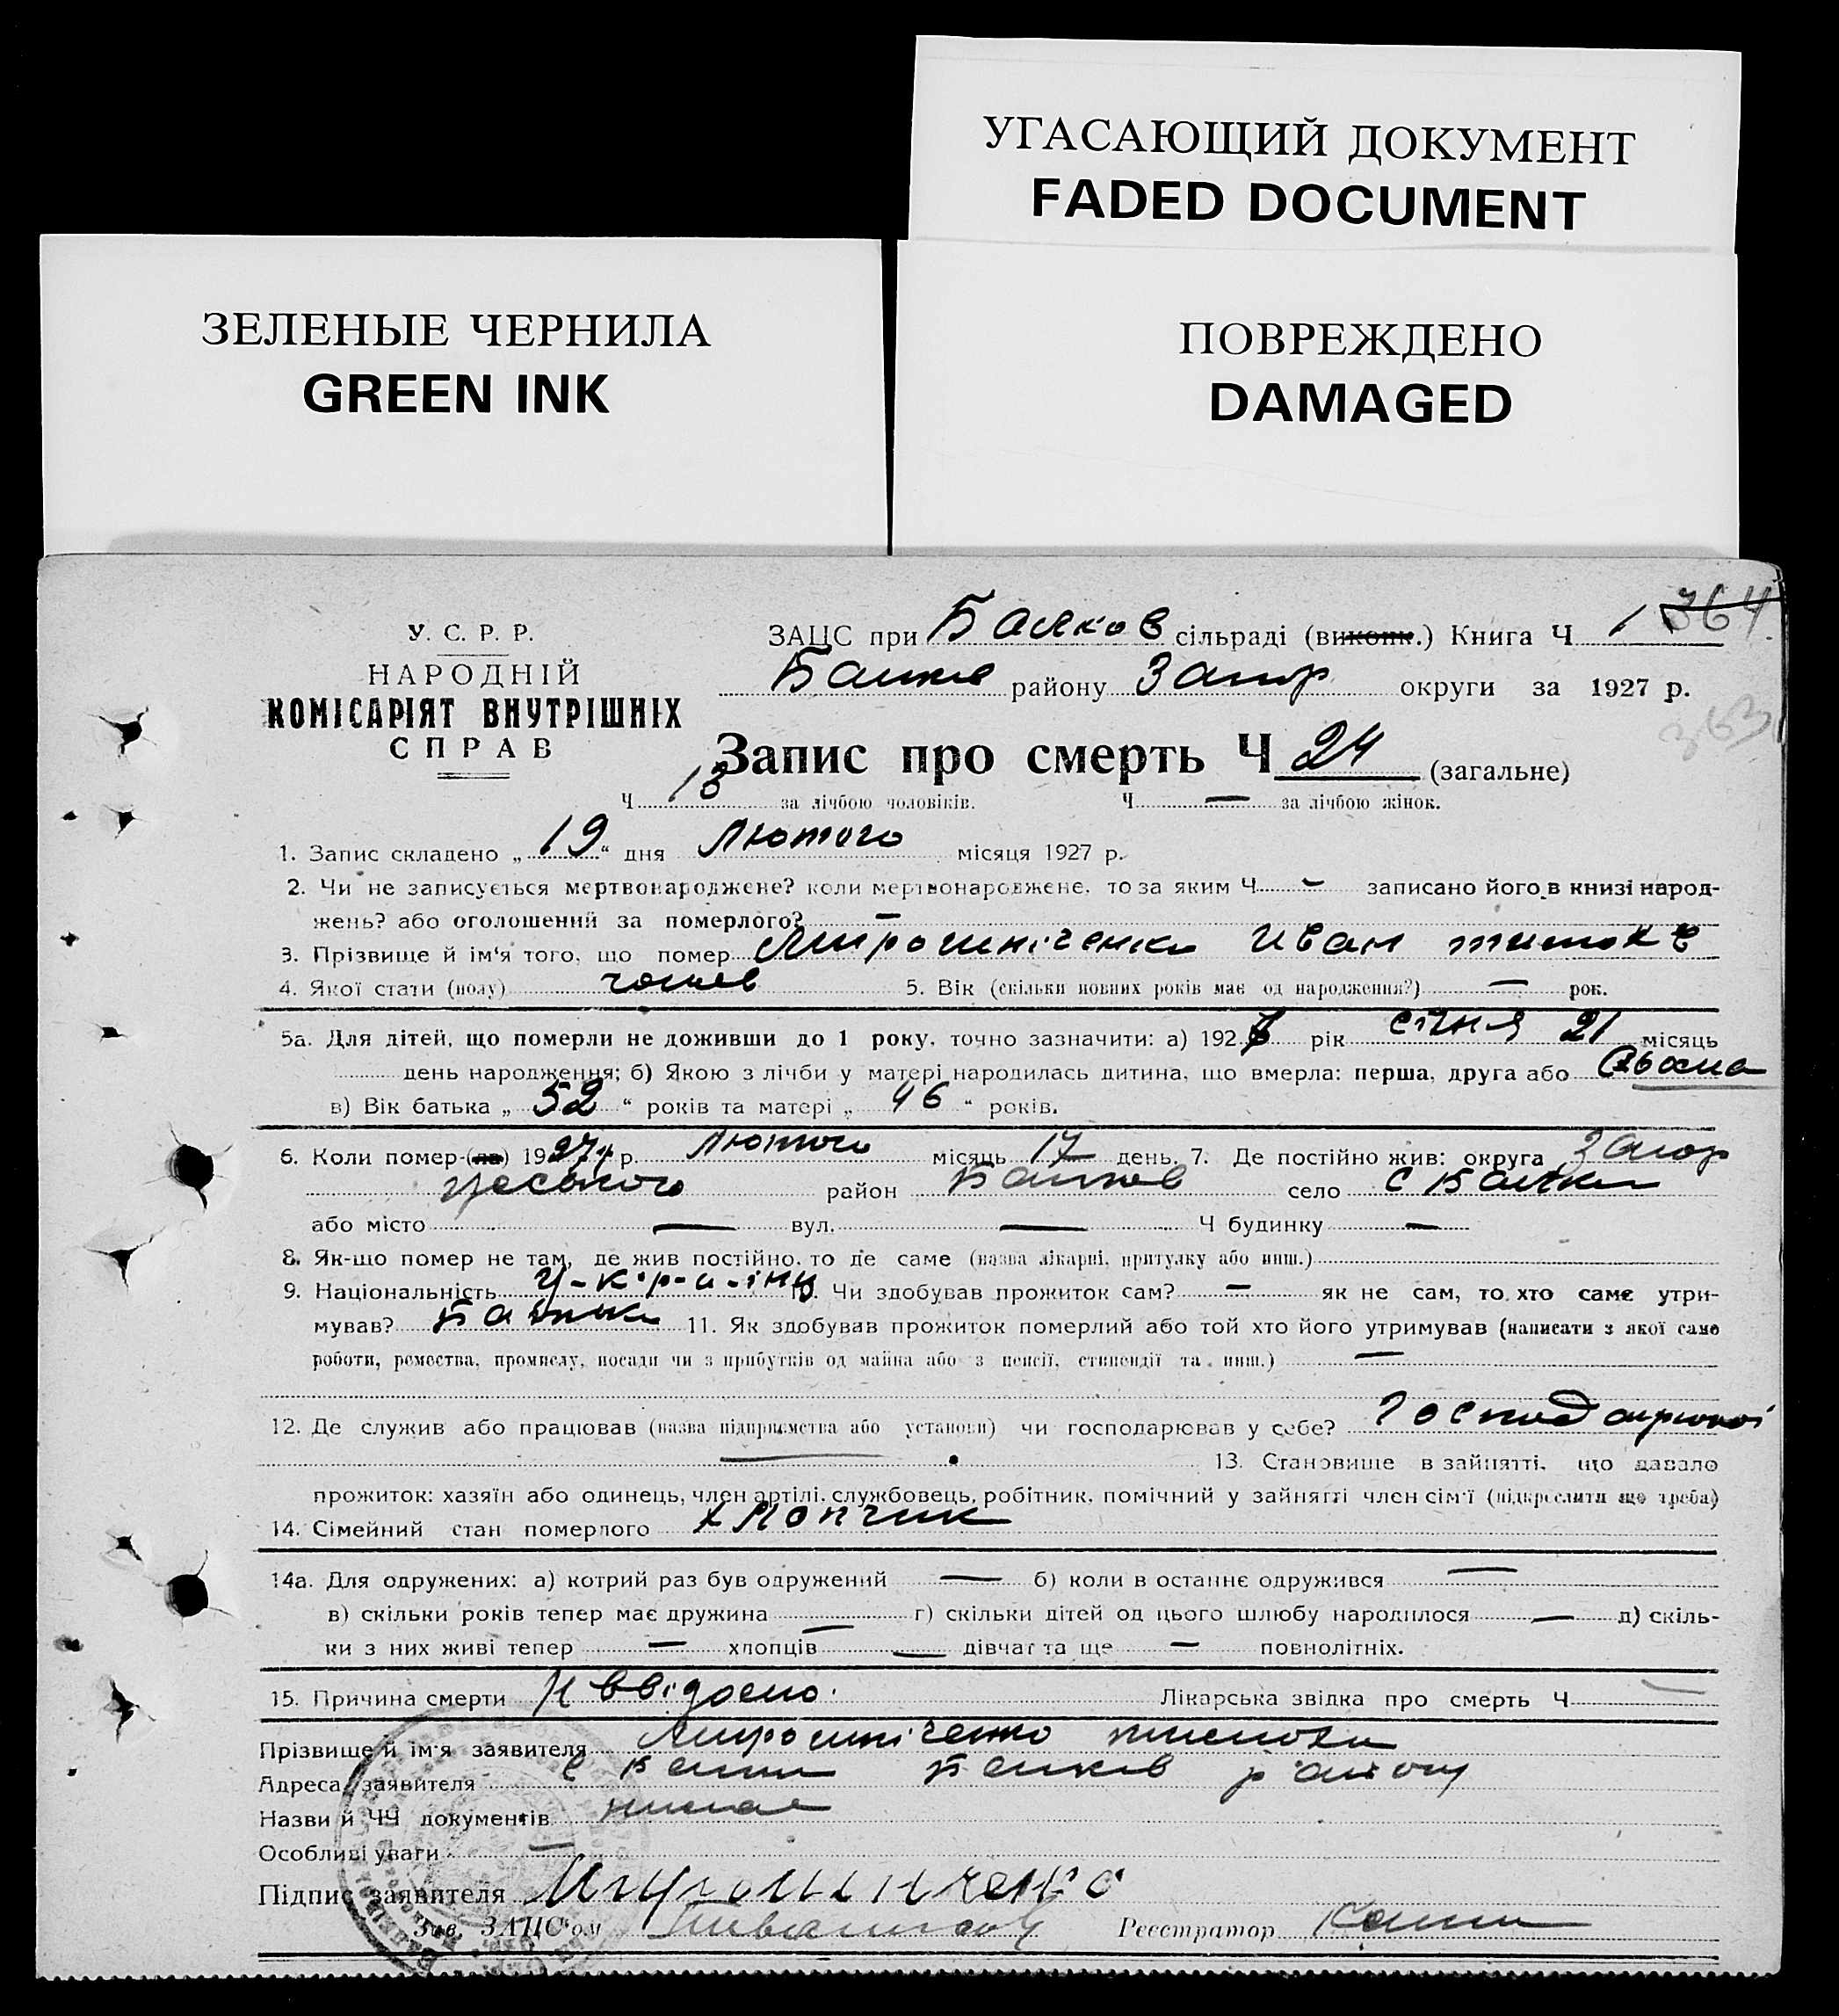 УГАСАЮЩИЙ ДОКУМЕНТ
FADED DOCUMENT
ЗЕЛЕНЫЕ ЧЕРНИЛА
GREEN INK
ПОВРЕЖДЕНО
DAMAGED
364
У. С. Р. Р.
НАРОДНІЙ
КОМІСАРІЯТ ВНУТРІШНІХ
СПРАВ
ЗАЦС при Балков сільраді (виконк.) Книга Ч 1
Балков району Запор округи за 1927 р.
363
Запис про смерть Ч 24 (загальне)
Ч 13 за лічбою чоловіків. Ч — за лічбою жінок.
1. Запис складено „ 19 “ дня Лютого місяця 1927 р.
2. Чи не записується мертвонароджене? коли мертвонароджене, то за яким Ч - записано його в книзі народ-
жень? або оголошений за померлого? —
3. Прізвище й ім'я того, що помер Мирошніченко Иван
4. Якої стати (полу) чолов 5. Вік (скільки повних років має од народження?) — рок.
5а. Для дітей, що померли не доживши до 1 року, точно зазначити: а) 1927 рік січня 21 місяць
день народження; б) Якою з лічби у матері народилась дитина, що вмерла: перша, друга або
в) Вік батька „ 52 “ років та матері „ 46 “ років.
6. Коли помер-(ла) 1927 р. Лютого місяць 17 день. 7. Де постійно жив: округа Запор
район Балков село С Балки
або місто — вул. — Ч будинку —
8. Як-що помер не там, де жив постійно, то де саме (назва лікарні, притулку або инш.)
9. Національність у-к-р-а-інц. Чи здобував прожиток сам? — як не сам, то хто саме утри-
мував? Батьки 11. Як здобував прожиток померлий або той хто його утримував (написати з якої саме
роботи, ремества, промислу, посади чи з прибутків од майна або з пенсії, стипендії та инш.) —
12. Де служив або працював (назва підприємства або установи) чи господарював у себе?
— 13. Становище в зайнятті, що давало
прожиток: хазяїн або одинець, член артілі, службовець, робітник, помічний у зайнятті член сім'ї (підкреслити що треба)
14. Сімейний стан померлого хлопчик
14а. Для одружених: а) котрий раз був одружений — б) коли в останнє одружився —
в) скільки років тепер має дружина — г) скільки дітей од цього шлюбу народилося — д) скіль-
ки з них живі тепер — хлопців — дівчат та ще — повнолітніх.
15. Причина смерти Лікарська звідка про смерть Ч —
Прізвище й ім'я заявителя Мирошніченко
Адреса заявителя с Балки Балков району
Назви й ЧЧ документів немає
Особливі уваги —
Підпис заявителя Мирошниченко
Зав. ЗАЦС'ом Реєстратор